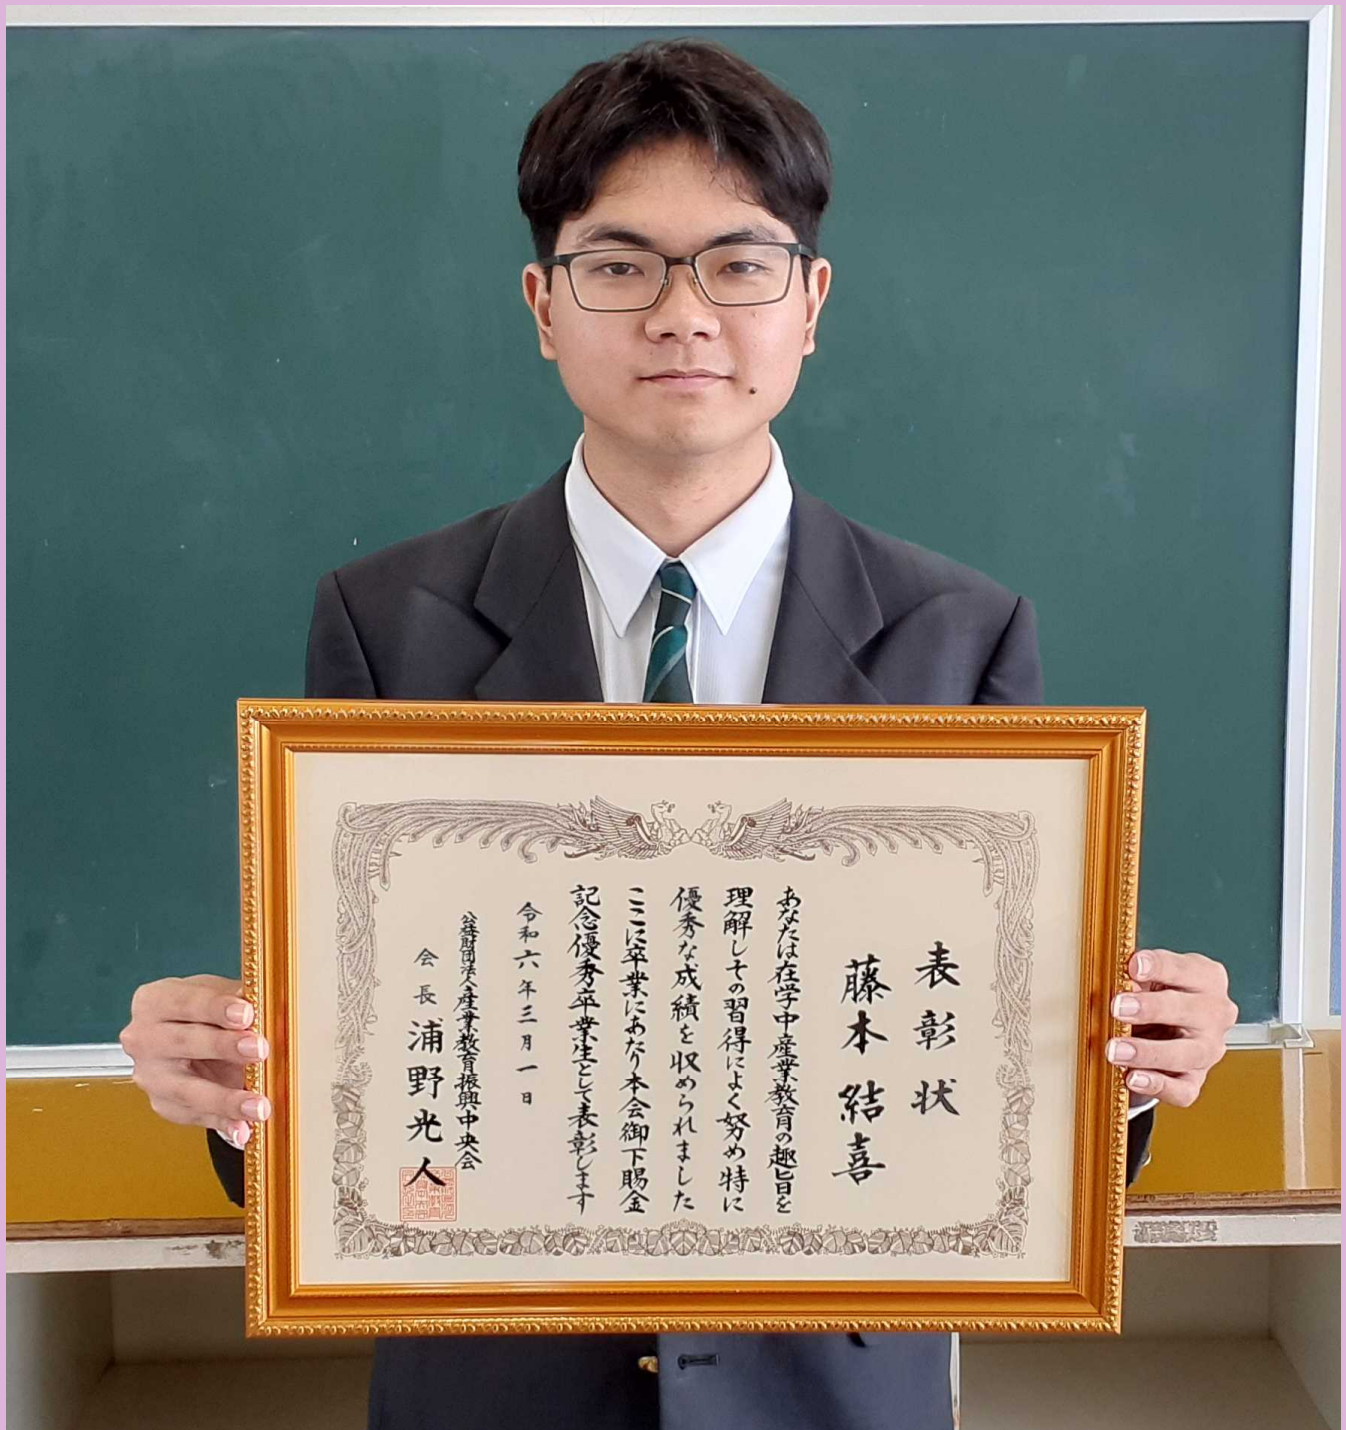 表彰状
藤本 結喜
あなたは在学中産業教育の趣旨を
理解しその習得によく努め特に
優秀な成績を収められました
ここに卒業にあたり本会御下賜金
記念優秀卒業生として表彰します
令和六年三月一日
公益財団法人産業教育振興中央会
会長 浦野光人